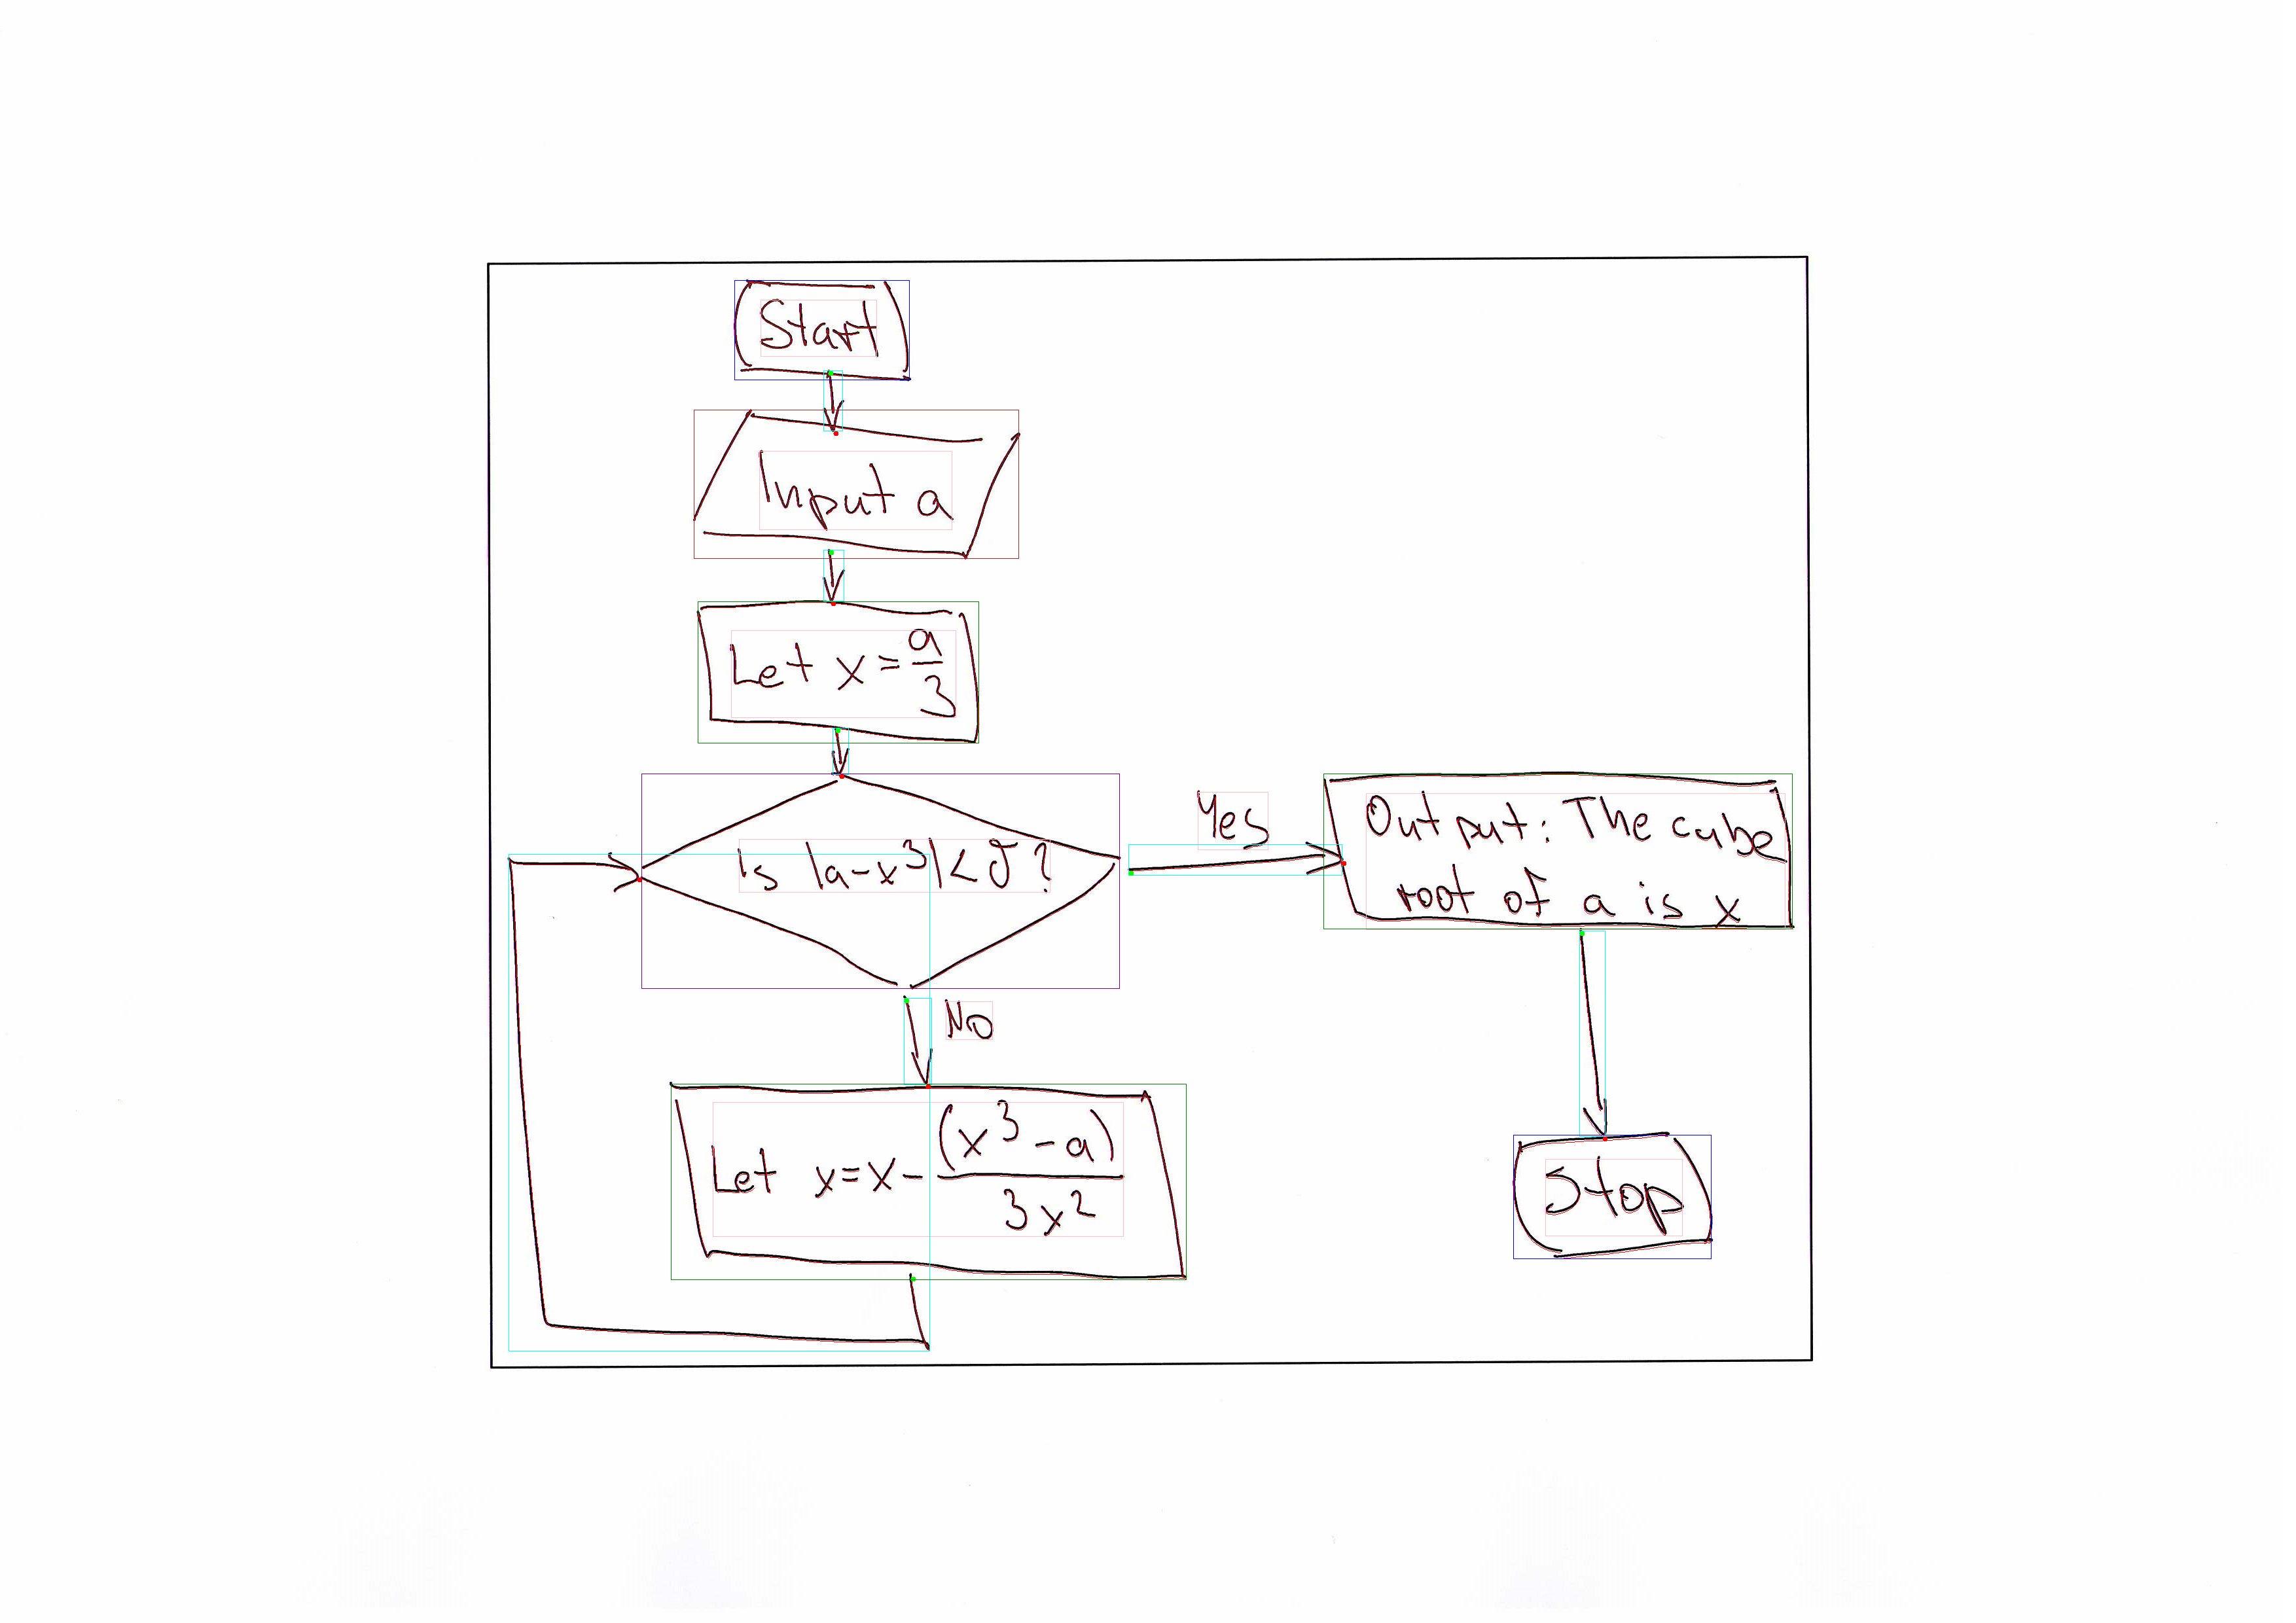 Start
Input a
Let x = a/3
Is |a-x³| < δ?
Yes
Output: The cube
root of a is x
No
Let x=x-(x³-a)/3x²
Stop